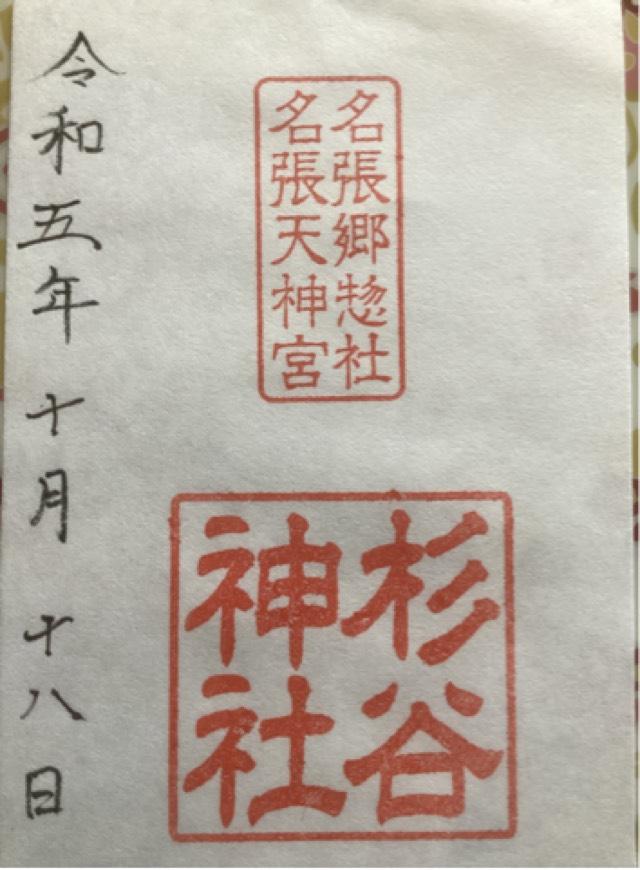 名張郷惣社
名張天神宮
杉谷
神社
令和五年十月十八日